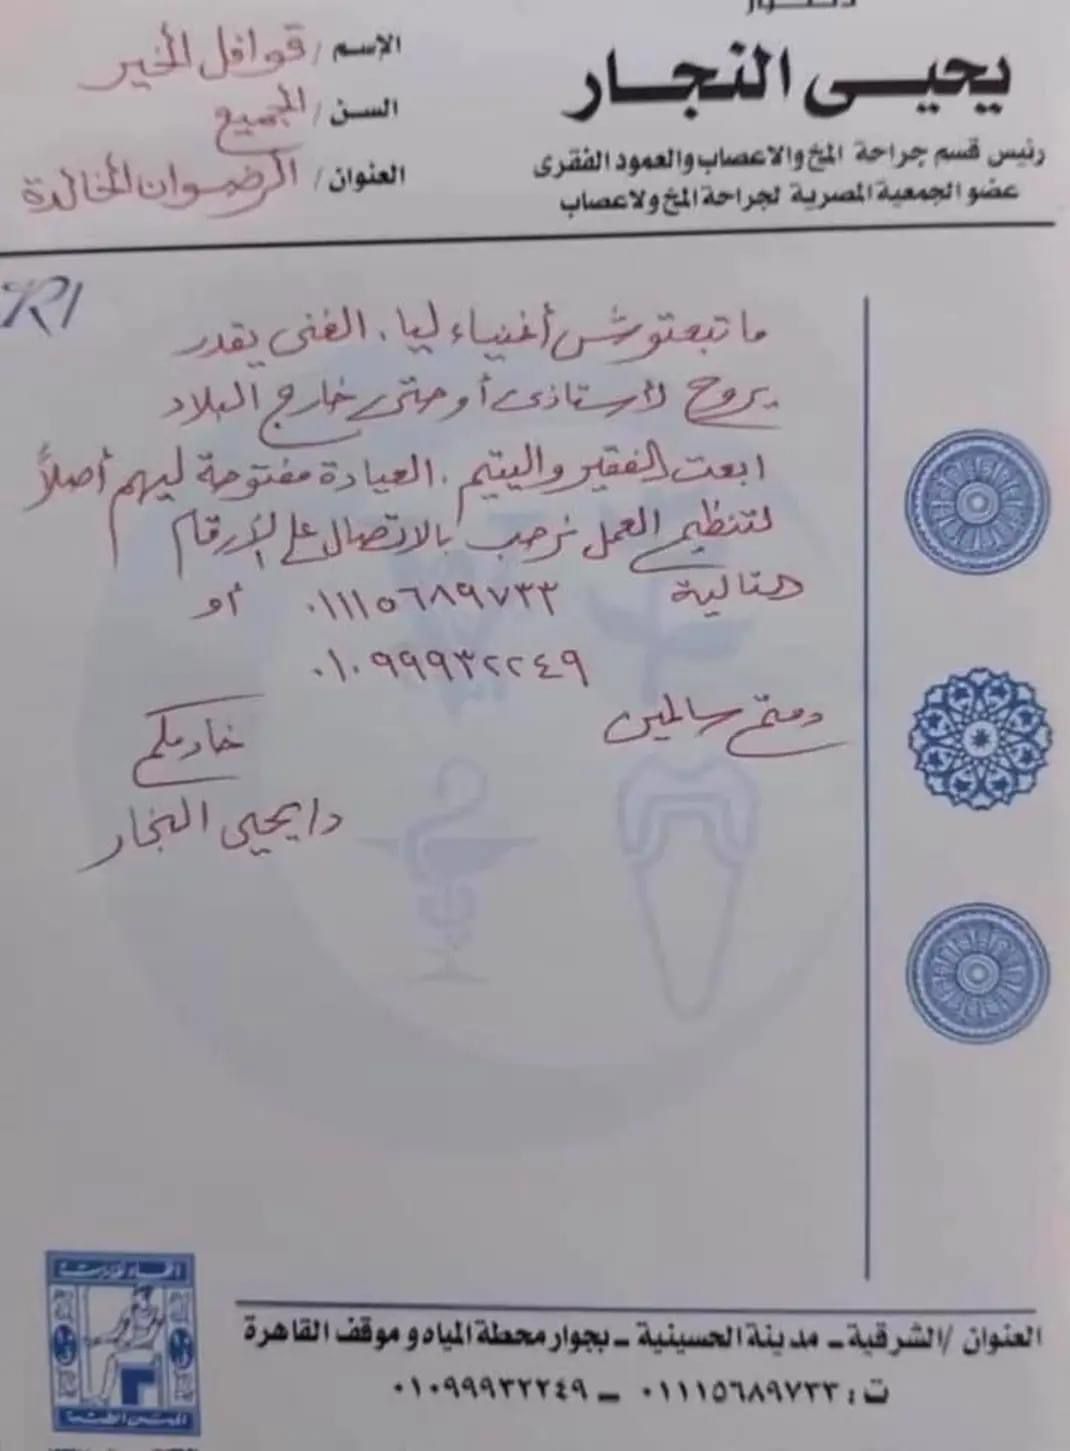 يحيى النجار
رئيس قسم جراحة المخ والاعصاب والعمود الفقرى
عضو الجمعية المصرية لجراحة المخ ولاعصاب
الإسم / قوافل الخير
السن / الجميع
العنوان / الرضوان الخالدة
ماتبعتوش أغنياء ليا. الغنى يقدر
يروح لأستاذى أو حتى خارج البلاد
ابعت الفقير واليتيم. العيادة مفتوحة ليهم أصلاً
لتنظيم العمل نرحب بالاتصال على الأرقام
التالية ٠١١١٥٦٨٩٧٣٣ أو
٠١٠٩٩٩٣٢٢٤٩
دمتم سالمين
خادمكم
د/يحيى النجار
العنوان /الشرقية - مدينة الحسينية - بجوار محطة المياه و موقف القاهرة
ت : ٠١١١٥٦٨٩٧٣٣ - ٠١٠٩٩٩٣٢٢٤٩